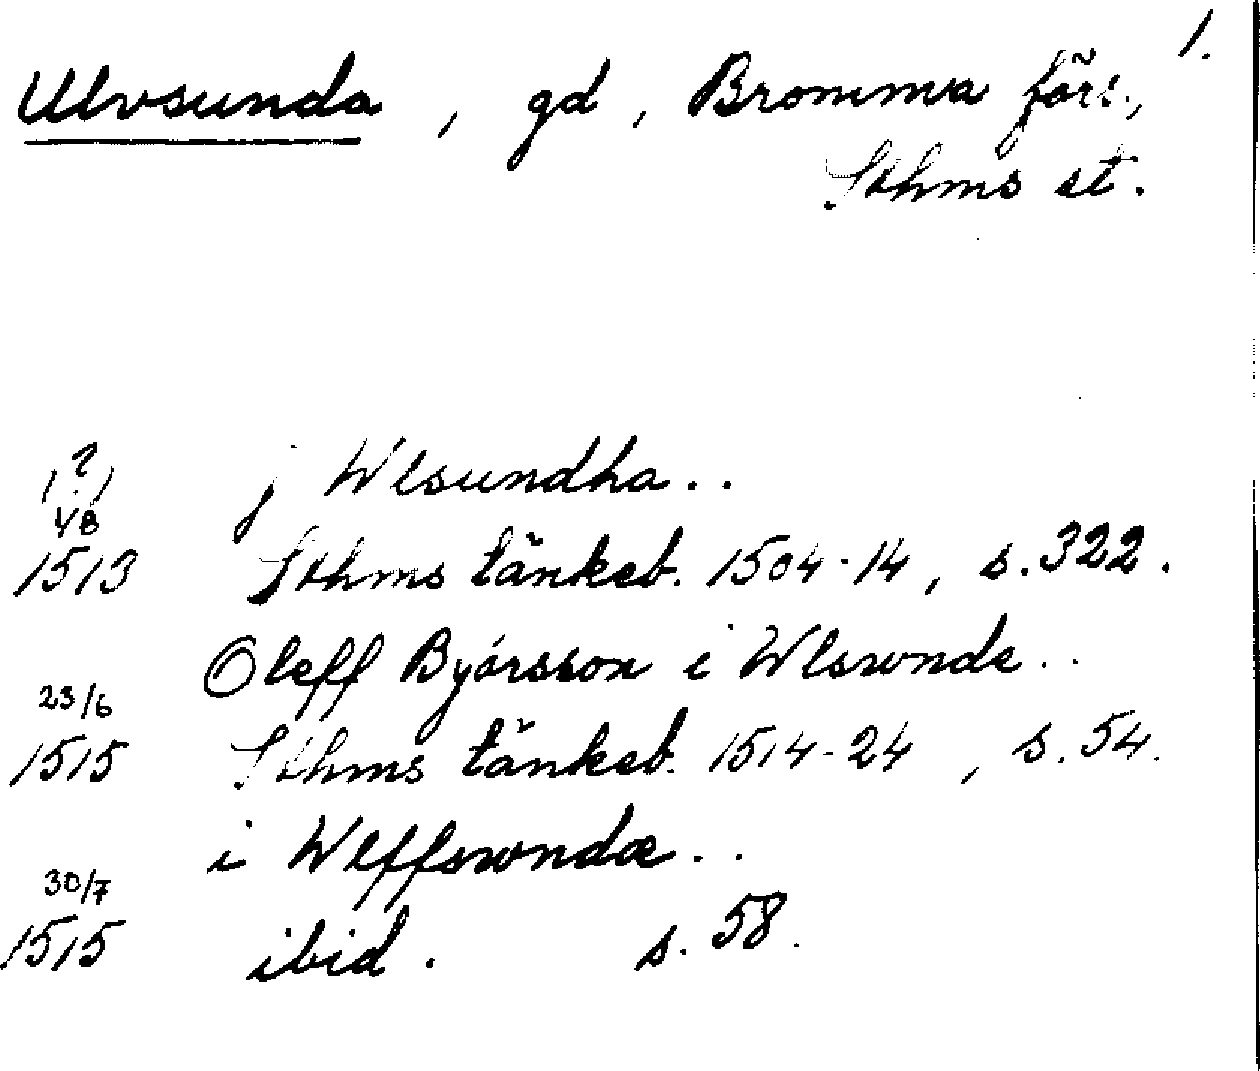 1.
Ulvsunda, gd, Bromma förs.,
Sthms st.
(?) j Wlsundha..
1/8
1513 Sthms tänkeb. 1504-14, s. 322.
Oleff Byórsson i Wlswnde..
23/6
1515 Sthms tänkeb. 1514-24, s. 54.
i Wlffswndæ..
30/7
1515 ibid. s. 58.